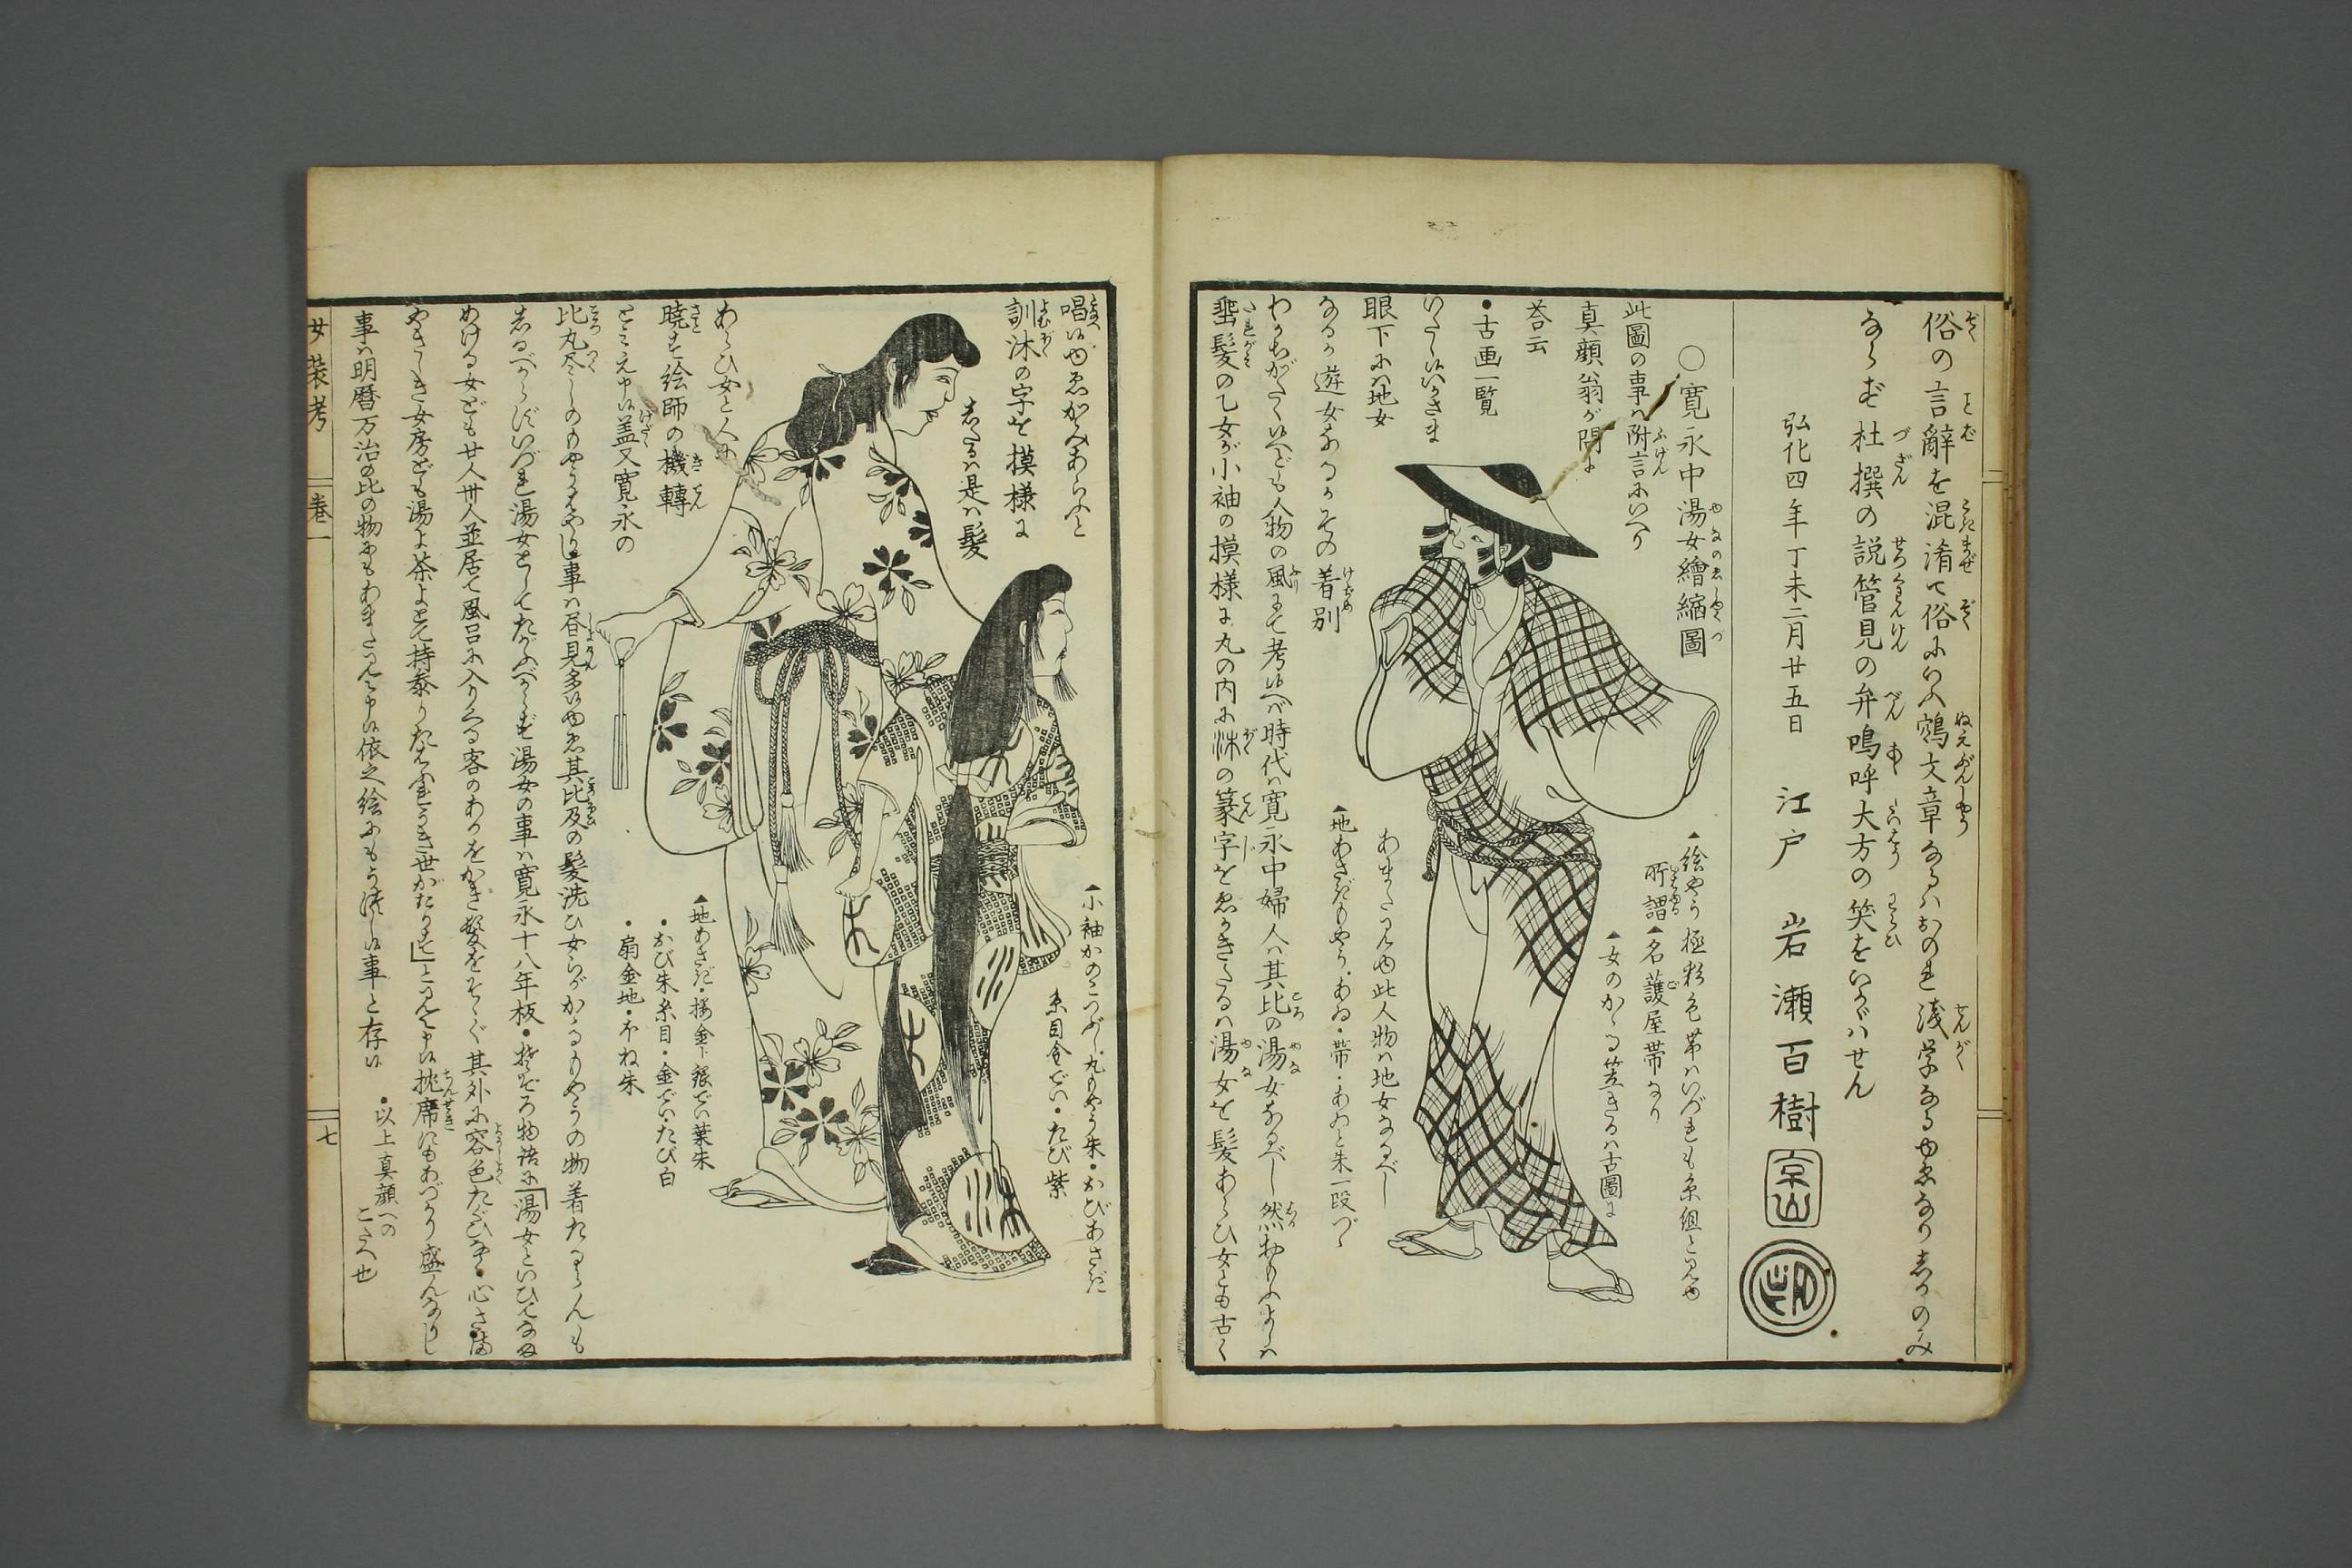 俗の言辭を混淆て俗にいふ鵼文章なるはおのれ浅学なるゆゑなりしかのみ
ならず杜撰の説管見の弁嗚呼大方の笑をいかゞはせん
弘化四年丁未二月廿五日 江戸 岩瀬百樹
京山
〇寛永中湯女繪縮圖
此圖の事は附言にいへり
真顔翁が問に
荅云
•古画一覧
いたし候いかさま
眼下には地女
なるか遊女なるかその着別
わかちがたく候へども人物の風にて考候へば時代は寛永中婦人は其比の湯女なるべし然おもふよしは
埀髪の乙女が小袖の摸様に丸の内に沐の篆字をゑがきたるは湯女を髪あらひ女とも古く
絵やう極彩色帯はいづれも糸組と見ゆ
所謂名護屋帯なり
女のかゝる笠きるは古圖に
あまた見ゆ此人物は地女なるべし
地あさぎもやう•あゐ•帯•あゐと朱一段づゝ
唱候ゆゑかみあらふと
訓沐の字を摸様に
したるは是は髪
あらひ女と人に
暁す絵師の機轉
と見え申候盖又寛永の
比丸尽しのもやうはやりし事は昏見多候ゆゑ其比及の髪洗ひ女らがかゝるもやうの物着たるらんも
しるべからずいづれ湯女としてたがふべからず湯女の事は寛永十八年板•そゞろ物語に「湯女といひてなま
めける女ども廿人卅人並居て風呂に入りくる客のあかをかき髪をそゝぐ其外に容色たぐひなく•心さま
やさしき女房ども湯よ茶よとて持参りたはふれうき世がたりす」と見え申候枕席にもあづかり盛んなりし
事は明暦万治の比の物にもあまた見え申候依之絵にもうつし候事と存候
•以上真顔への
こたへ也
小袖かのこつゞし丸もやう朱•おびあさぎ
糸目金でい•たび紫
地あさぎ•桜金ト銀でい葉朱
•おび朱糸目•金でい•たび白
•扇金地•ほね朱
女装考 巻一 七